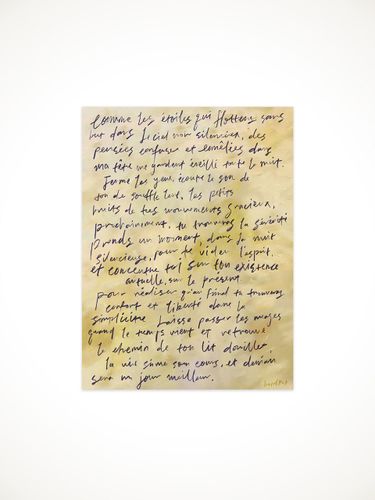 Comme les étoiles qui flottent sans
but dans le ciel noir silencieux, des
pensées confuses et emêlées dans
ma tête me gardent éveillé toute la nuit.
Ferme les yeux, écoute le son de
ton souffle lent, les petits
bruits de tes mouvements gracieux,
prochainement, tu trouveras la sérénité
prends un moment, dans la nuit
silencieuse, pour te vider l'esprit.
et concentre toi sur ton existence
actuelle, sur le présent
pour réaliser qu'au fond tu trouveras
confort et liberté dans la
simplicité. Laisse passer les nuages
quand le temps vient et retrouve
le chemin de ton lit douillet
la vie suit son cours, et demain
sera un jour meilleur.